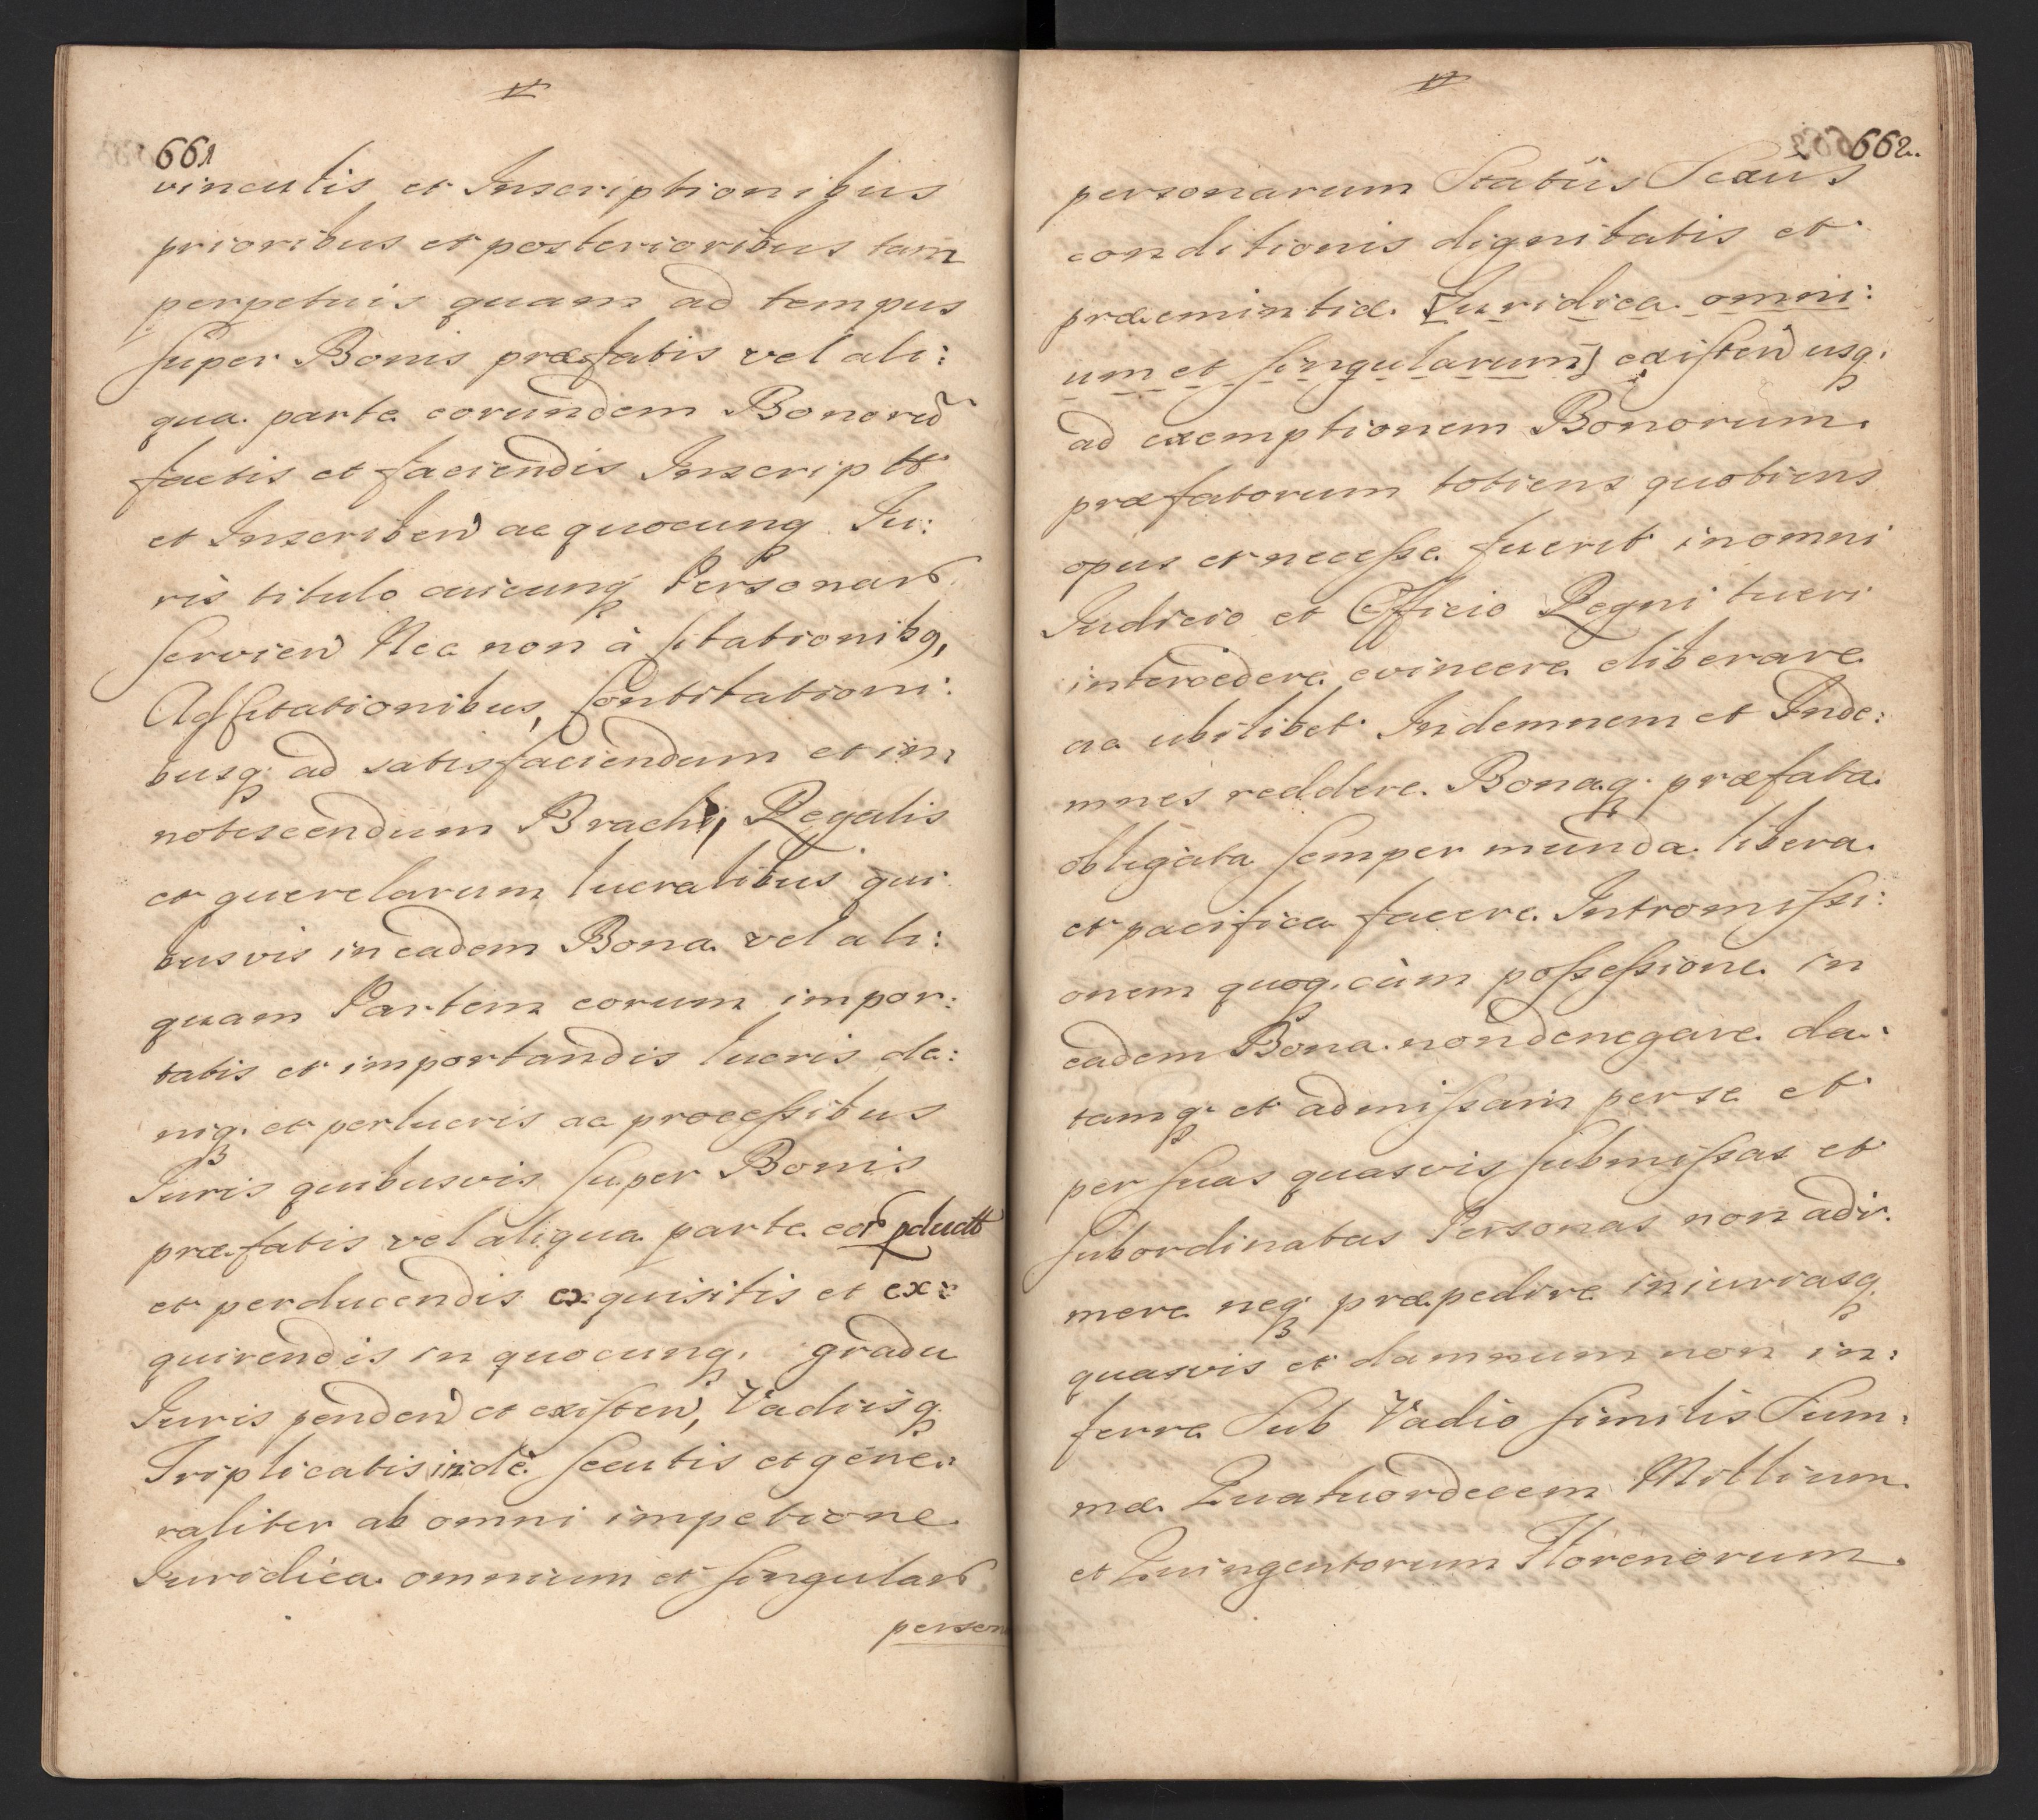 661
vinculis et Inscriptionibus
prioribus et posterioribus tam
perpetuis quam ad tempus
super Bonis præfatis vel ali:
qua parte eorundem Bonorũ
factis et faciendis Inscriptt
et Inscriben ac quocunq Iu:
ris titulo cuicunq Personar
servien Nec non à Citationibq,
Adcitationibus, Contitationi:
busq ad satisfaciendum et in:
notescendum Brachi, Regalis
et querelarum lucralibus qui
busvis in eadem Bona vel ali:
quam Partem eorum impor:
tatis et importandis lucris de:
niq et perlucris ac processibus
Iuris quibusvis super Bonis
præfatis vel aliqua parte eor pductt
et perducendis exquisitis et ex:
quirendis in quocunq gradu
Iuris penden et existen, Vadiisq
Triplicatis indè secutis et gene:
raliter ab omni impetione
Iuridica omnium et singular
person
662.
personarum Statûs Sexûs
conditionis dignitatis et
præemintiæ [Iuridica omni:
um et singularum] existen usq
ad exemptionem Bonorum
præfatorum totiens quotiens
opus et necesse fuerit in omni
Iudicio et Officio Regni tueri
intercedere evincere eliberare
ac ubilibet Indemnem et Inde:
mnes reddere Bonaq præfata
obligata semper munda libera
et pacifica facere Intromissi:
onem quoq cùm possessione in
eadem Bona non denegare da:
tamq et admissam per se et
per suas quasvis submissas et
subordinatas Personas non adi:
mere neq præpedire iniuriasq
quasvis et damnum non in:
ferre Sub Vadio similis Sum:
mæ Quatuordecem Millium
et Quingentorum Florenorum